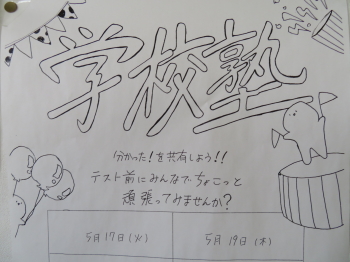 学校塾
分かった!を共有しよう!!
テスト前にみんなでちょこっと
頑張ってみませんか?
5月17日(火)
5月19日(木)